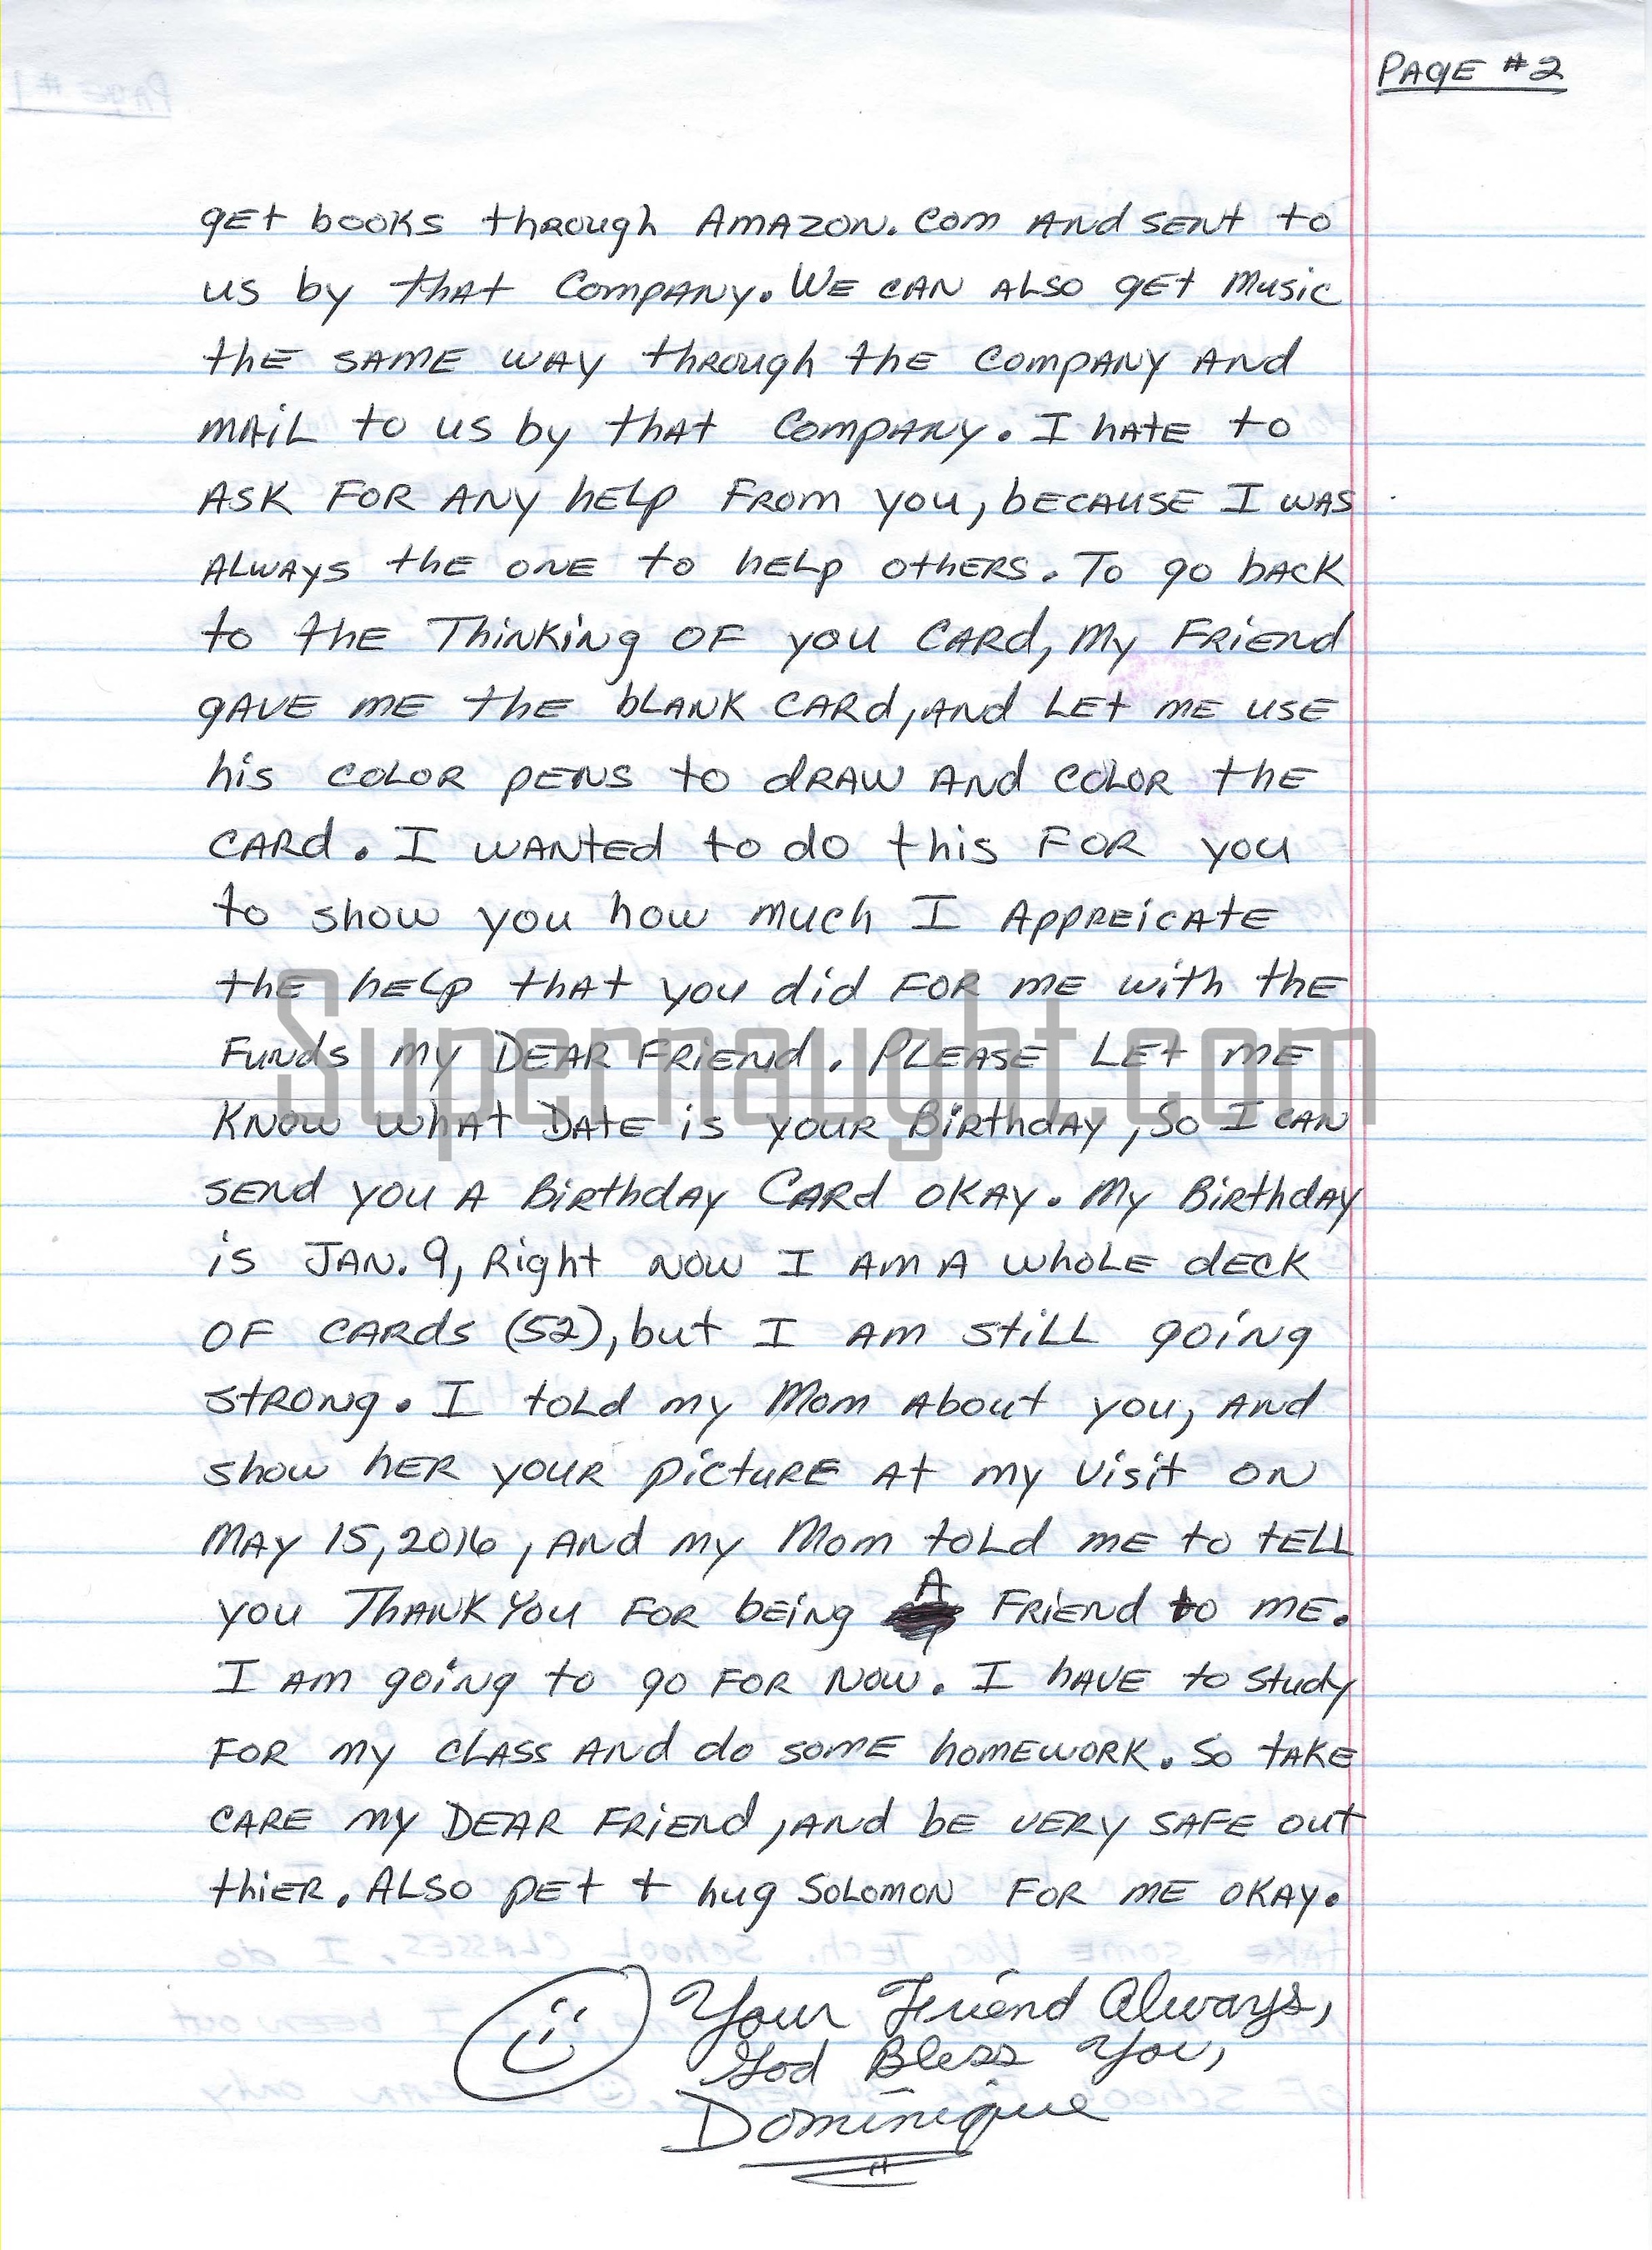 PAGE #2
get books through Amazon.com and sent to
us by that Company. We can also get Music
the same way through the Company and
mail to us by that Company. I hate to
ask for any help from you, because I was
always the one to help others. To go back
to the Thinking of you Card, my Friend
gave me the blank card, and let me use
his color pens to draw and color the
card. I wanted to do this for you
to show you how much I Appreicate
the help that you did for me with the
Funds my Dear Friend. Please let me
know what Date is your Birthday, So I can
send you a Birthday Card okay. My Birthday
is Jan. 9, Right now I am a whole deck
of cards (52), but I am still going
strong. I told my Mom about you, and
show her your picture at my visit on
May 15, 2016, and my Mom told me to tell
you Thank You for being A Friend to me.
I am going to go for now. I have to study
for my class and do some homework. So take
care my Dear Friend, and be very safe out
thier. Also pet + hug Solomon for me okay.
Your Friend Always,
God Bless You,
Dominique
Supernaught.com